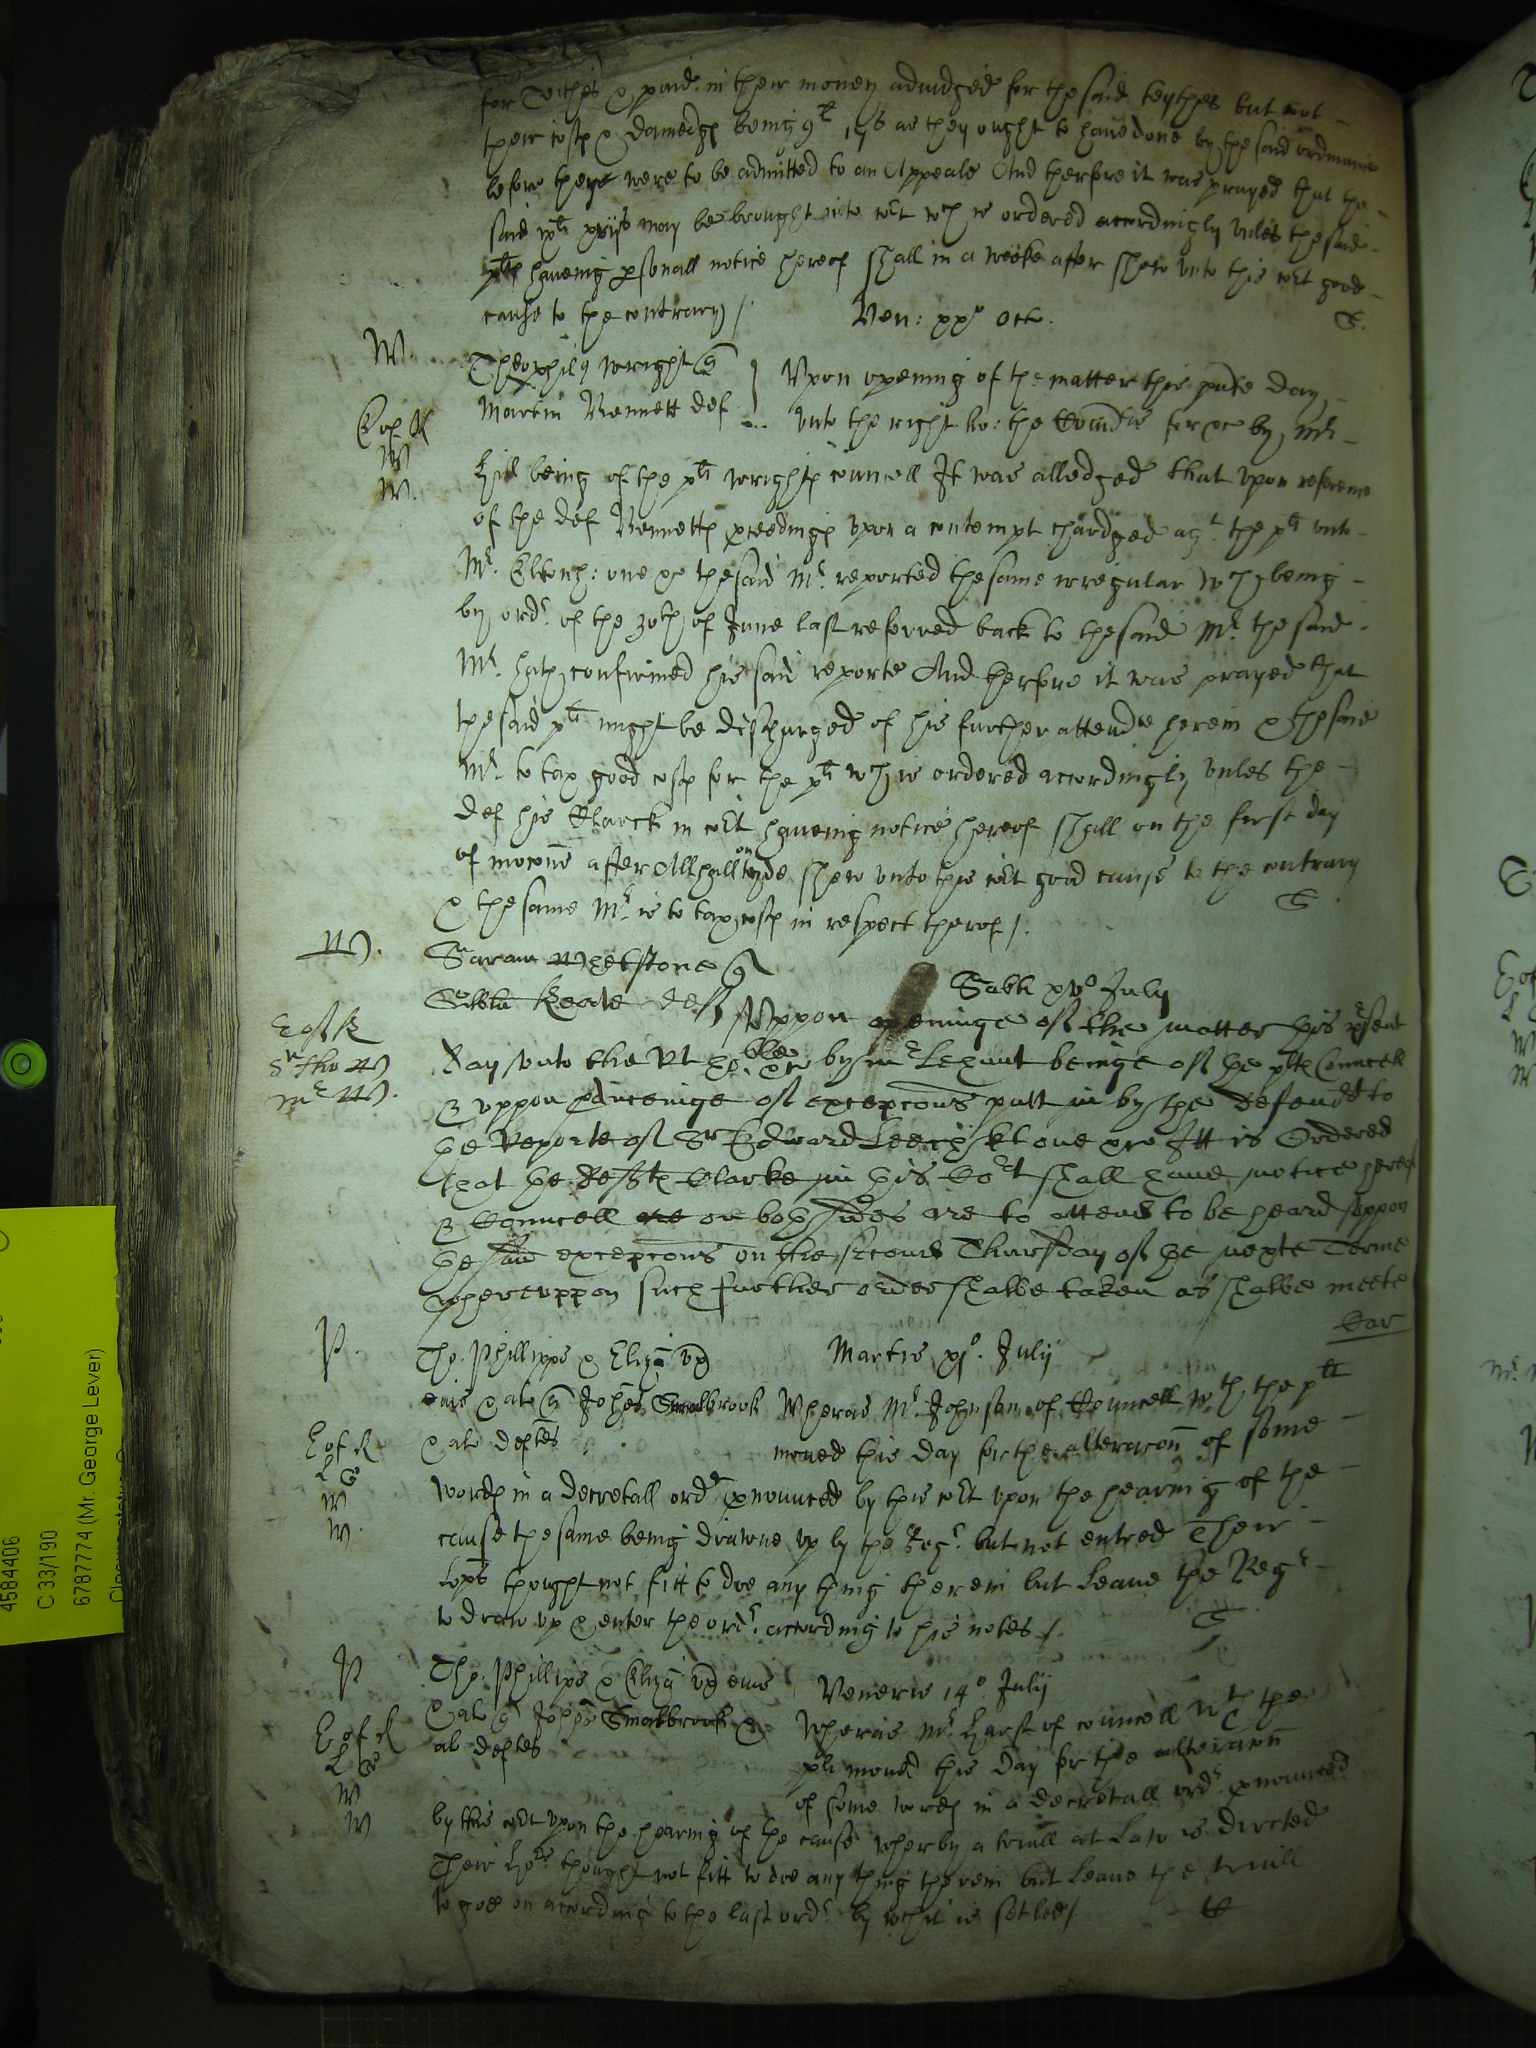 for Tithes & paid in their money adiudged for the said teythes but not
their costs & damages being 9li 17s as they ought to have done by the said ordinance
before theye were to be admitted to an Appeale And therfore it was prayed that the
said may be brought into cort wch is ordered accordingly unles the said
plts haveing psonall notice hereof shall in a weeke after shew unto this cort good
cause to the contrary /
Ven: xxo Oct.
W.
Theophil9 Wright q
Martin Bennett def
Vpon opening of the matter this pnte day
unto the right ho: the Comrs for &c by Mr
E of K
W
W.
Hill being of the plt Wrights councell It was alledged that upon reference
of the def Bennetts pceedings upon a contempt chardged agt the plt unto
Mr. Eltonh: one &c the said Mr. reported the same irregular wch being
by ordr of the 30th of June last referred back to the said Mr. the said
Mr. hath confirmed his said reporte And therfore it was prayed that
the said plt might be discharged of his further attendce herein & the said
Mr. to tax good costs for the plt wch is ordered accordingly unles the
def his Clarck in cort haveing notice hereof shall on the first day
of mocons after Allhallontyde shew unto this cort good cause to the contrary
& the same Mr. is to tax costs in respect therof /.
W.
Saram Whetstone q
Keate deft
Sabti xvo July
E of K
Sr Tho W
Mr W.
Uppon openinge of the matter this psent
day unto the Rt hoble &c by Mr beinge of the plts Councell
& uppon pduceinge of excepcons putt in by the defendt to
the Reporte of Sr Edward Leech kt one &c Itt is Ordered
that the defts Clarke in this Cort shall have notice hereof
& Councell are on both sides are to attend to be heard uppon
the said excepcons on the second Thursday of the nexte Terme
whereuppon such further order shalbe taken as shalbe meete
Car
P.
Tho. Phillipps & Eliza ux
Martis xjo. July
eius & al q Johes Smalbrook
& al deftes
Wheras Mr. Johnson of Councell wth the plt
moved this day for the alteracon of some
E of K
L G
W
W.
words in a decretall ordr pnounced by this cort upon the hearing of the
cause the same being drawne up by the Regr. but not entred Their
Lopps thought not fitt to doe any thing therein but leave the Regr
to draw up & enter the ordr. according to his notes /.
P
Tho: Phillips & Eliza ux eius
& al q Johes Smalbrook &
al deftes
Veneris 14o. July
E of K
L G
W
W
Wheras Mr. Hurst of councell wth the
plt moved this day for the alteracon
of some words in a decretall ordr pnounced
by this cort upon the hearing of the cause wherby a triall at Law is directed
Their Lopps thought not fitt to doe any thing therein but leave the triall
to goe on according to the last ordr. by wch it is setled /
4584406
C 33/190
6787774 (Mr. George Lever)